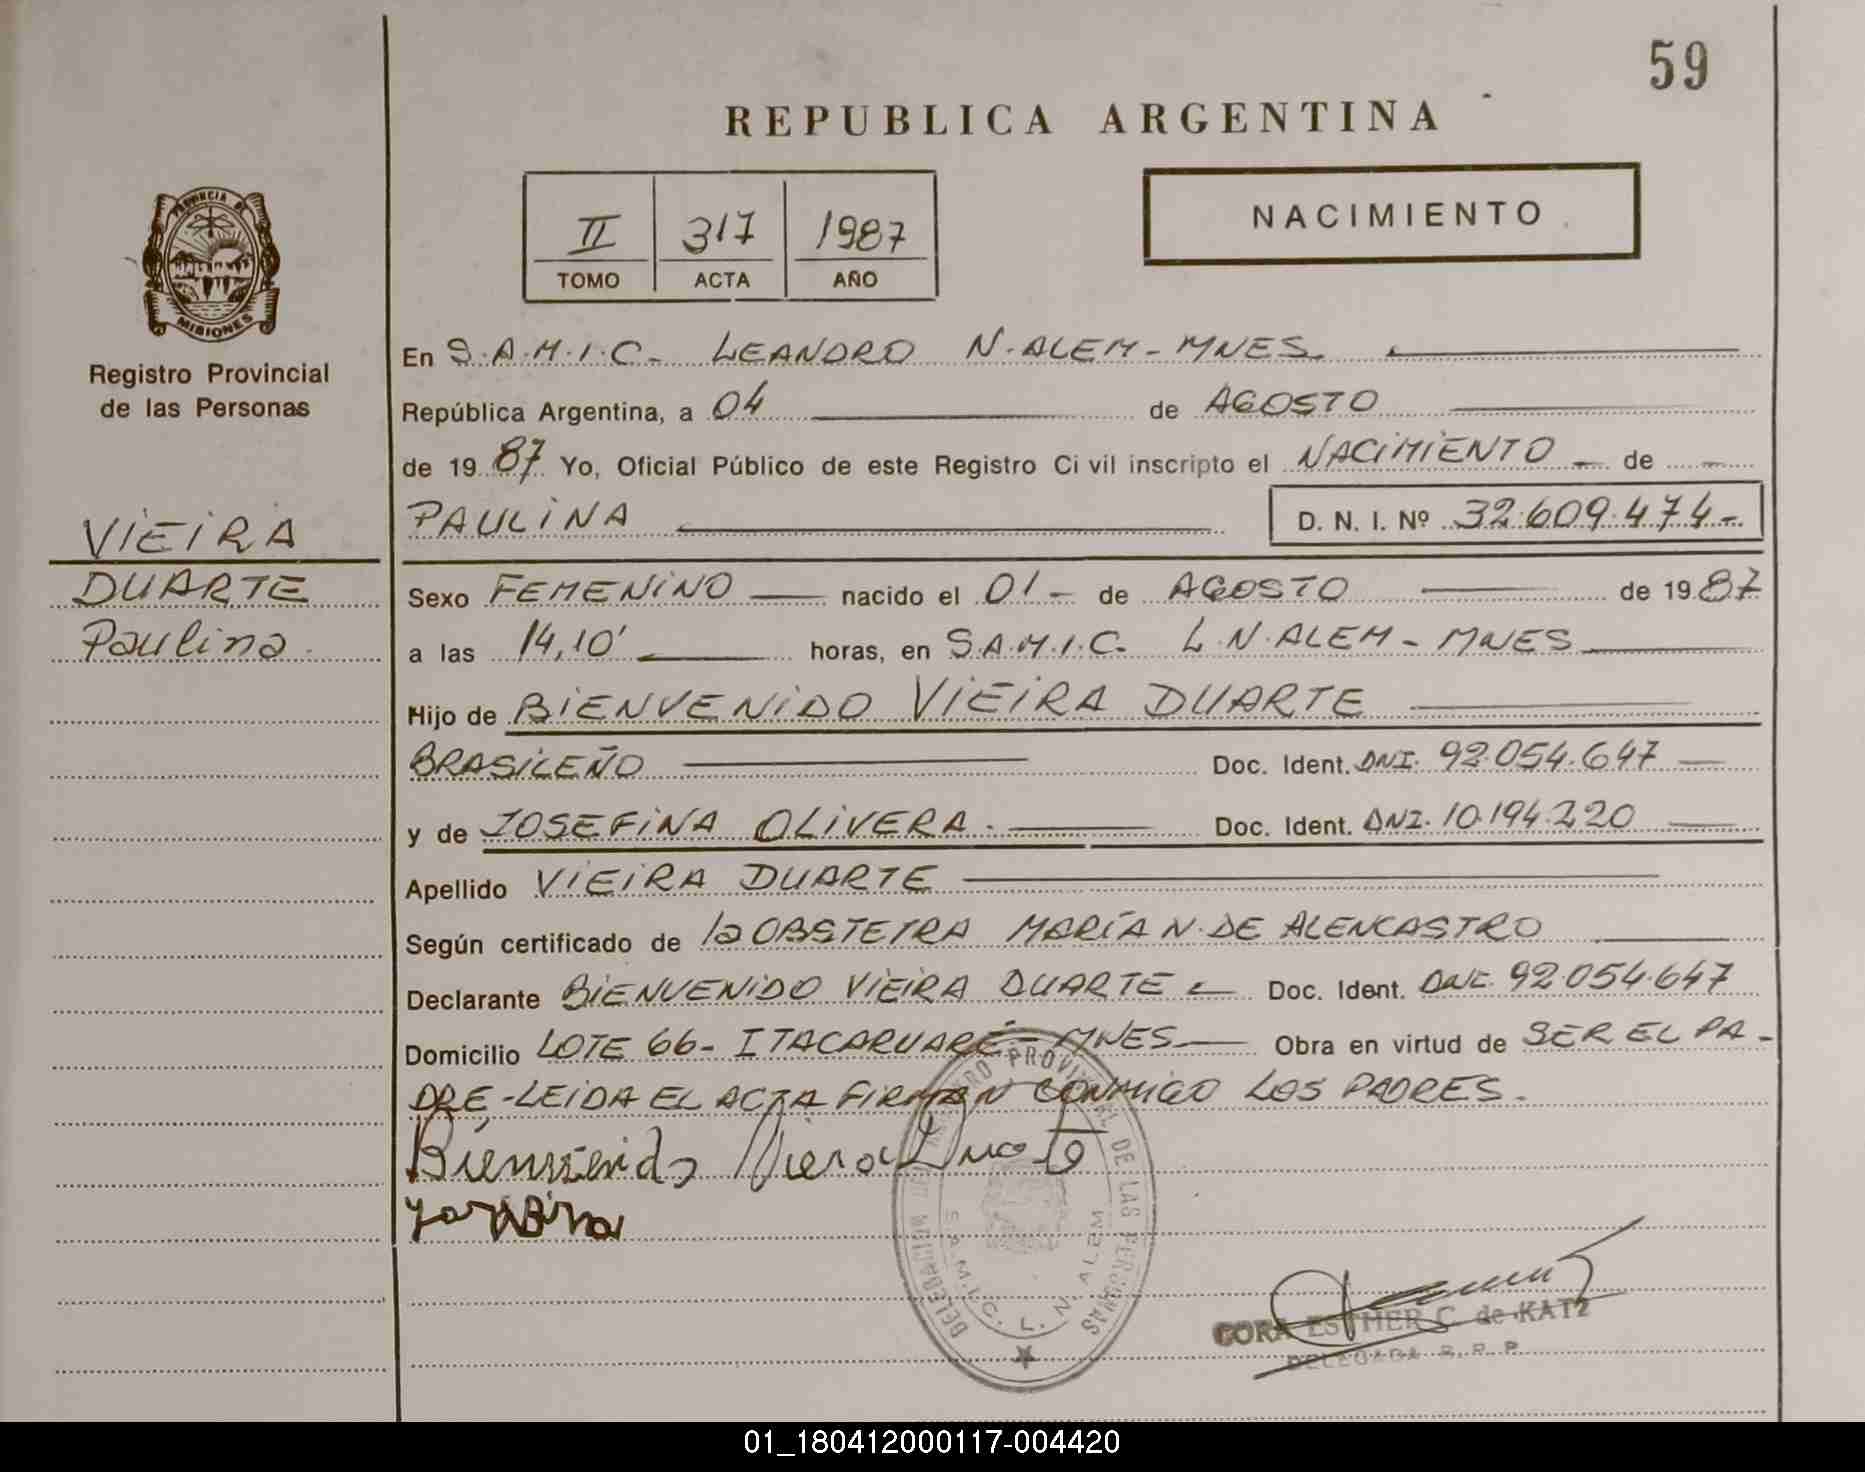 59
REPUBLICA ARGENTINA
II 317 1987
TOMO ACTA AÑO
NACIMIENTO
PROVINCIA DE
MISIONES
Registro Provincial
de las Personas
VIEIRA
DUARTE
Paulina.
En S.A.M.I.C. - LEANDRO N. ALEM - MNES.
República Argentina, a 04 de AGOSTO
de 19 87 Yo, Oficial Público de este Registro Ci vil inscripto el NACIMIENTO - de -
PAULINA D. N. I. Nº 32.609.474-
Sexo FEMENINO nacido el 01 - de AGOSTO de 19 87
a las 14,10' horas, en S.A.M.I.C. L.N. ALEM - MNES
Hijo de BIENVENIDO VIEIRA DUARTE
BRASILEÑO Doc. Ident. DNI. 92.054.647
y de JOSEFINA OLIVERA. Doc. Ident. DNI. 10.194.220
Apellido VIEIRA DUARTE
Según certificado de la OBSTETRA MARÍA N. DE ALENCASTRO
Declarante BIENVENIDO VIEIRA DUARTE Doc. Ident. DNI. 92.054.647
Domicilio LOTE 66 - ITACARUARÉ - MNES Obra en virtud de SER EL PA-
DRE - LEIDA EL ACTA FIRMAN CONMIGO LOS PADRES.
Bienvenido Viera Duarte
REGISTRO PROVINCIAL DE LAS PERSONAS
S.A.M.I.C. L. N. ALEM
CORA ESTHER C. de KATZ
DELEGADA R. P. P.
01_180412000117-004420